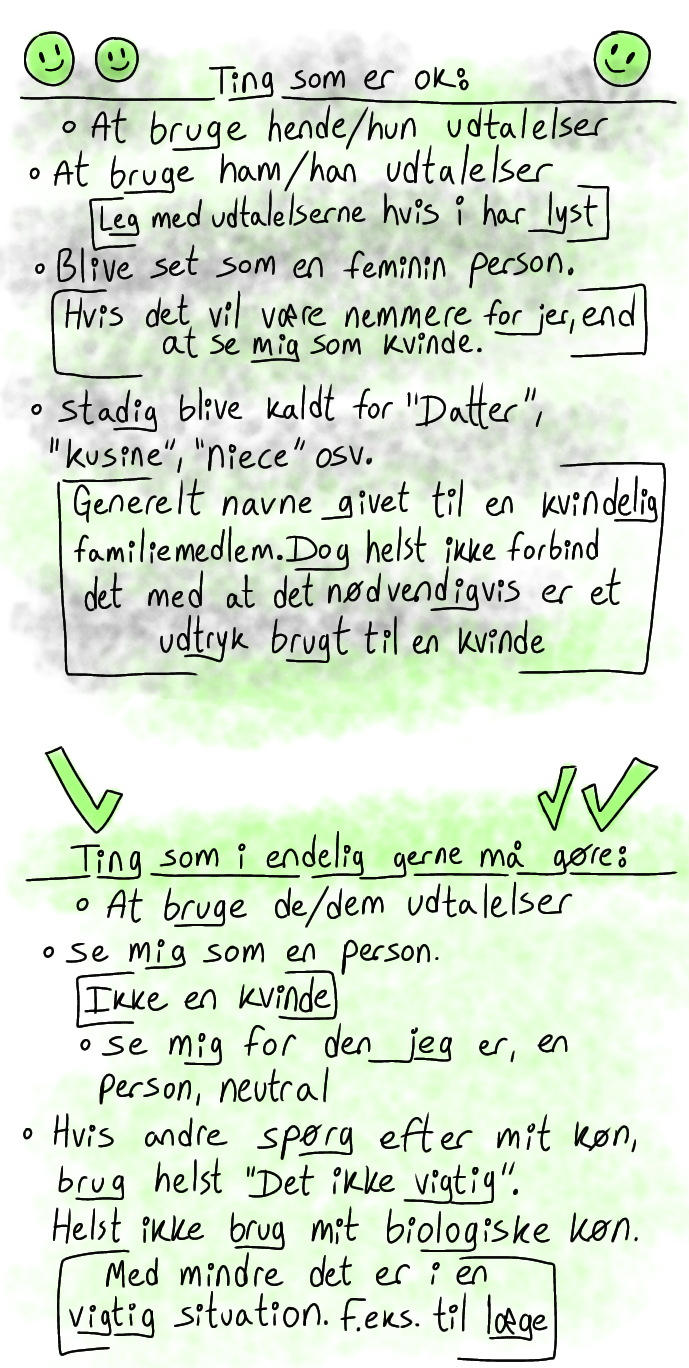 Ting som er ok:
• At bruge hende/hun udtalelser
• At bruge ham/han udtalelser
Leg med udtalelserne hvis i har lyst
• Blive set som en feminin person.
Hvis det vil være nemmere for jer, end
at se mig som kvinde.
• stadig blive kaldt for "Datter",
"kusine", "niece" osv.
Generelt navne givet til en kvindelig
familiemedlem. Dog helst ikke forbind
det med at det nødvendigvis er et
udtryk brugt til en kvinde
Ting som i endelig gerne må gøre:
• At bruge de/dem udtalelser
• se mig som en person.
Ikke en kvinde
• se mig for den jeg er, en
person, neutral
• Hvis andre spørg efter mit køn,
brug helst "Det ikke vigtig".
Helst ikke brug mit biologiske køn.
Med mindre det er i en
vigtig situation. F.eks. til læge